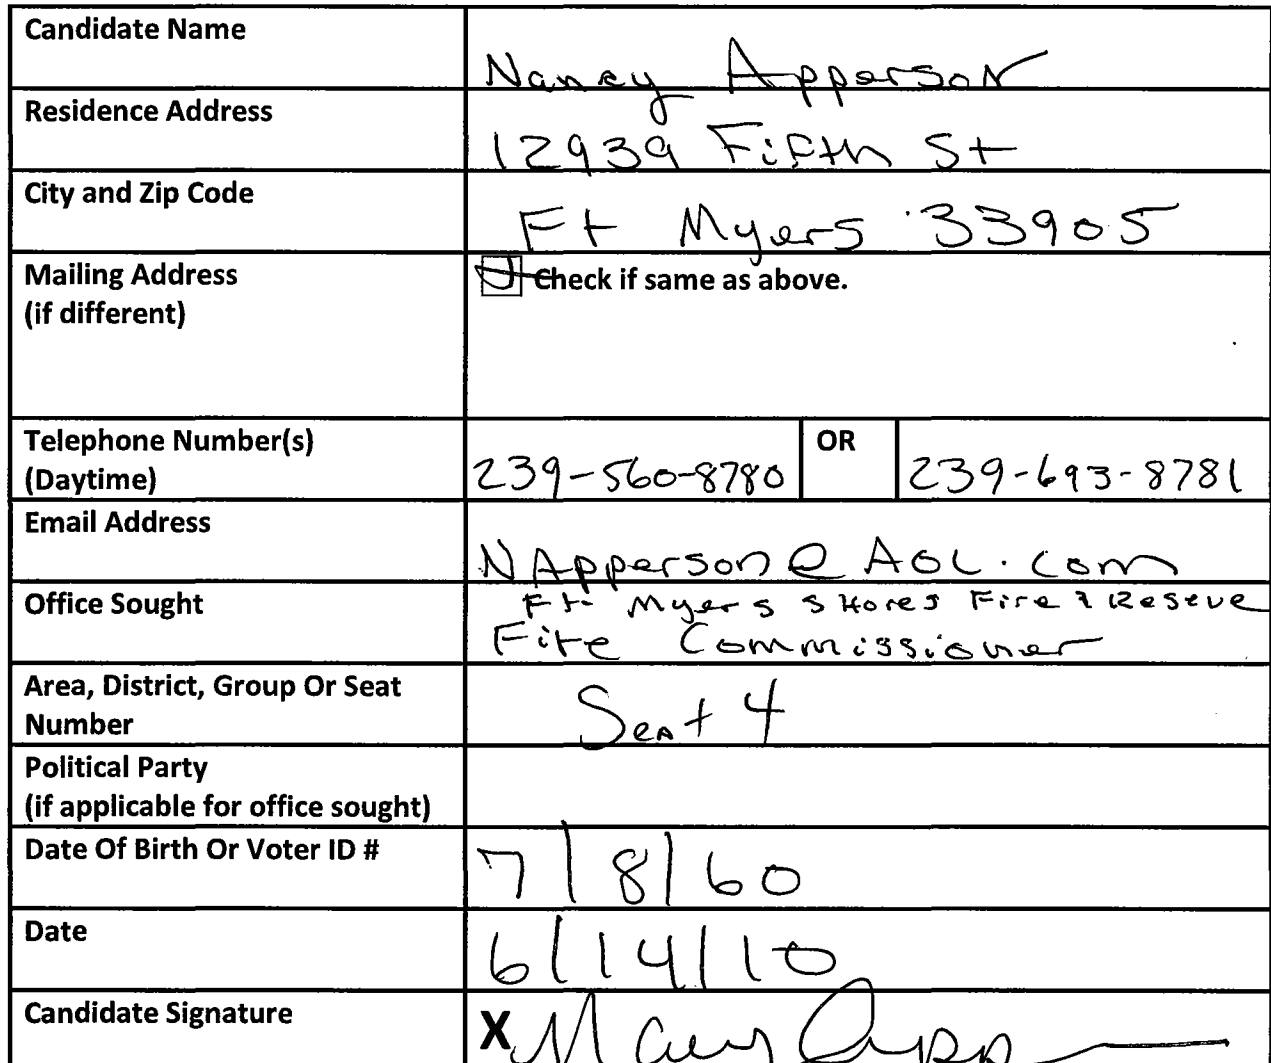 Candidate Name
Nancy Apperson
Residence Address
12939 Fifth St
City and Zip Code
Ft Myers 33905
Mailing Address
(if different)
Check if same as above.
Telephone Number(s)
(Daytime)
239-560-8780 OR 239-693-8781
Email Address
NApperson@AOL.com
Office Sought
Ft Myers Shores Fire & Rescue
Fire Commissioner
Area, District, Group Or Seat
Number
Seat 4
Political Party
(if applicable for office sought)
Date Of Birth Or Voter ID #
7/8/60
Date
6/14/10
Candidate Signature
X Nancy App